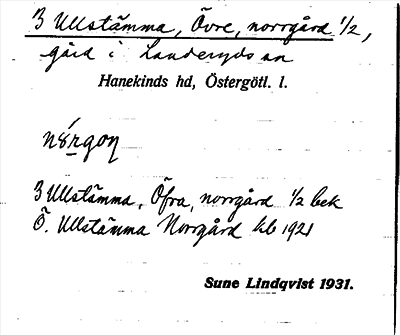 3 Ullstämma, Övre, norrgård 1/2,
gård i Landeryds sn
Hanekinds hd, Östergötl. l.
nórgoŋ
3 Ullstämma, Öfra, norrgård 1/2 bek
Ö. Ullstämma Norrgård kb 1921
Sune Lindqvist 1931.